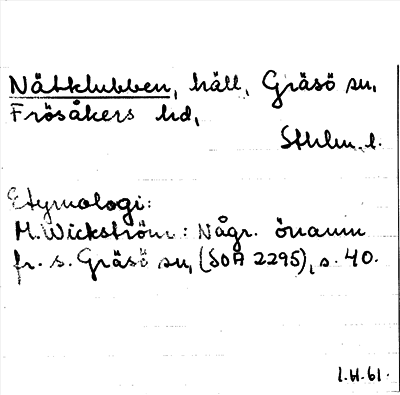 Nätklubben, häll, Gräsö sn,
Frösåkers hd,
Sthlm. l.
Etymologi:
M. Wickström: Någr. önamn
fr. s. Gräsö sn, (SOA 2295), s. 40.
I.H.61.